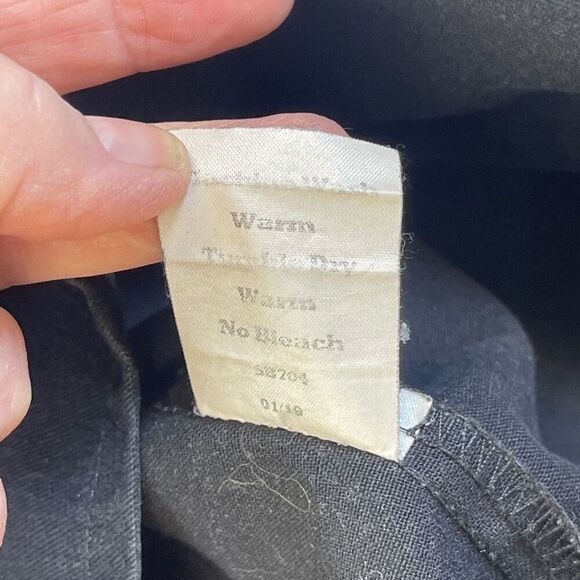 Warm
Tumble Dry
Warm
No Bleach
58704
01/19